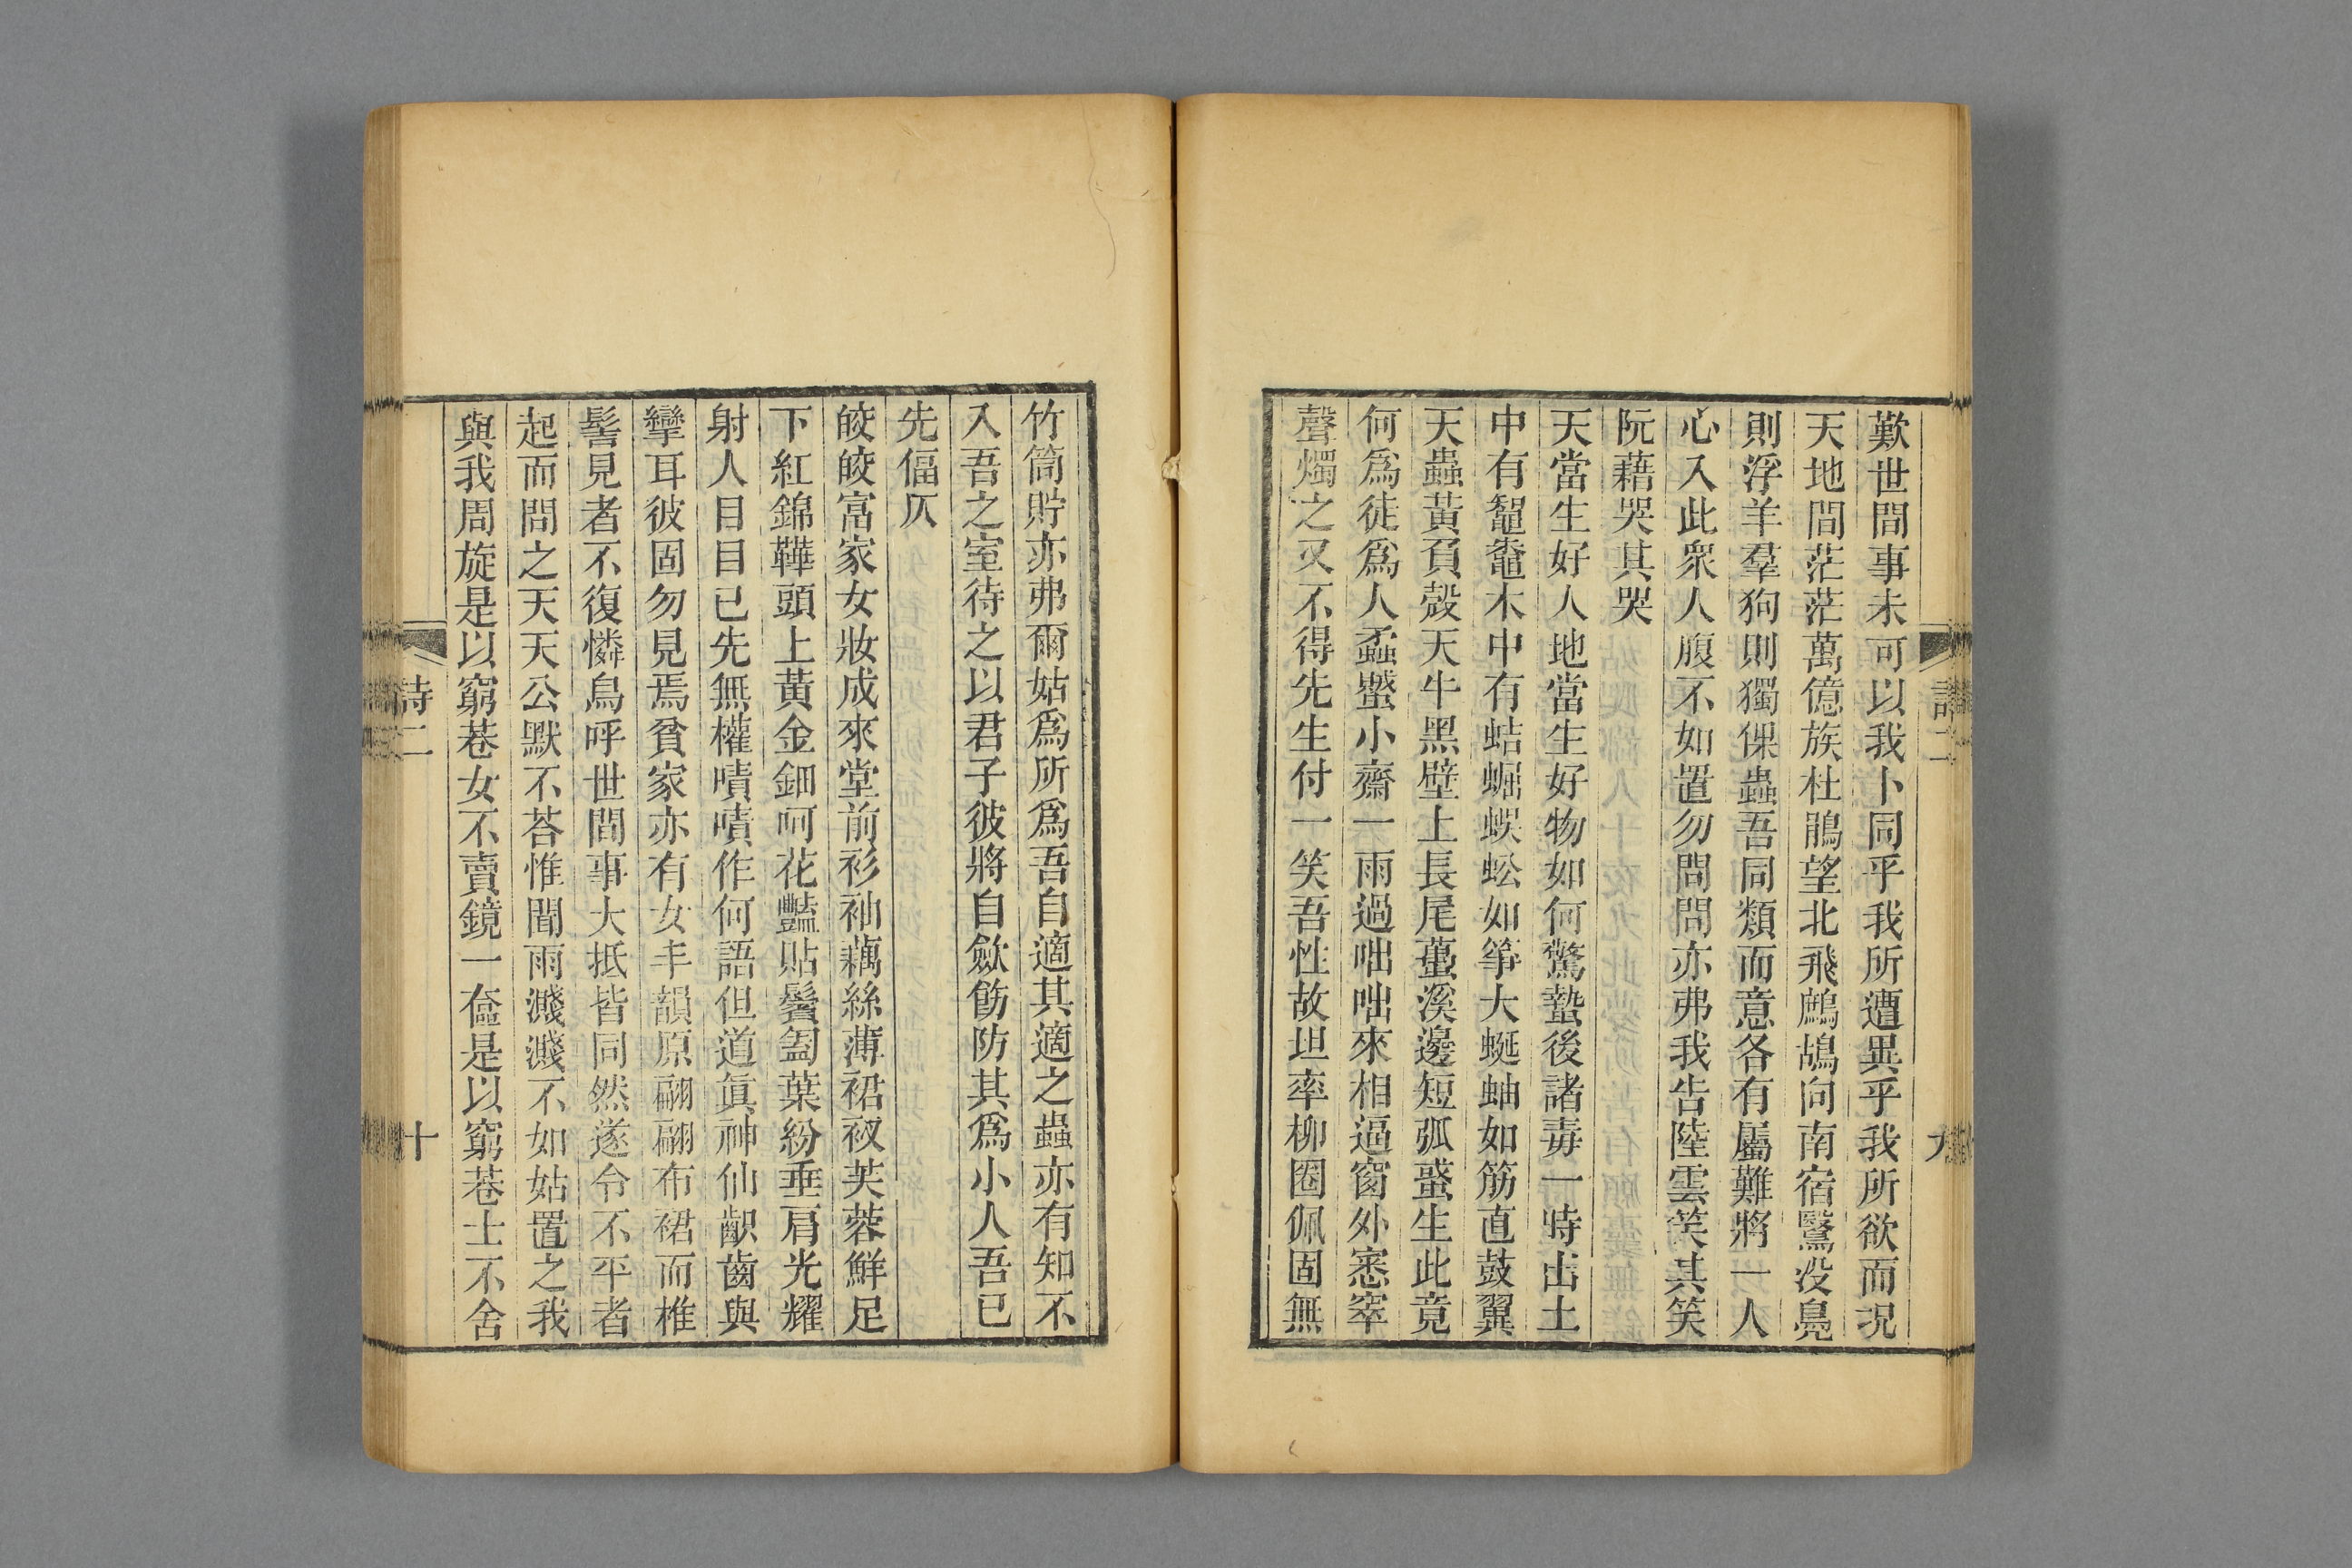 詩二
九
歎世間事未可以我卜同乎我所遭異乎我所欲而況
天地間茫茫萬億族杜鵑望北飛鷓鴣向南宿鷖没鳧
則浮羊羣狗則獨倮蟲吾同類而意各有屬難將一人
心入此衆人腹不如置勿問問亦弗我告陸雲笑其笑
阮藉哭其哭
天當生好人地當生好物如何驚蟄後諸毒一時出土
中有鼅鼄木中有蛣蜛蜈蚣如箏大蜒蚰如筋直鼓翼
天蟲黃負殼天牛黑壁上長尾蠆溪邊短弧蜮生此竟
何爲徒爲人蝥蠥小齋一雨過咄咄來相逼窗外窸窣
聲燭之又不得先生付一笑吾性故坦率柳圈佩固無
竹筒貯亦弗爾姑爲所爲吾自適其適之蟲亦有知不
入吾之室待之以君子彼將自歛飭防其爲小人吾已
先偪仄
皎皎富家女妝成來堂前衫袖藕絲薄裙衩芙蓉鮮足
下紅錦鞾頭上黃金鈿呵花豔貼鬢匎葉紛垂肩光耀
射人目目已先無權嘖嘖作何語但道眞神仙齞齒與
孿耳彼固勿見焉貧家亦有女丰韻原翩翩布裙而椎
髻見者不復憐烏呼世間事大抵皆同然遂令不平者
起而問之天天公默不荅惟聞雨濺濺不如姑置之我
與我周旋是以窮巷女不賣鏡一奩是以窮巷士不舍
詩二
十